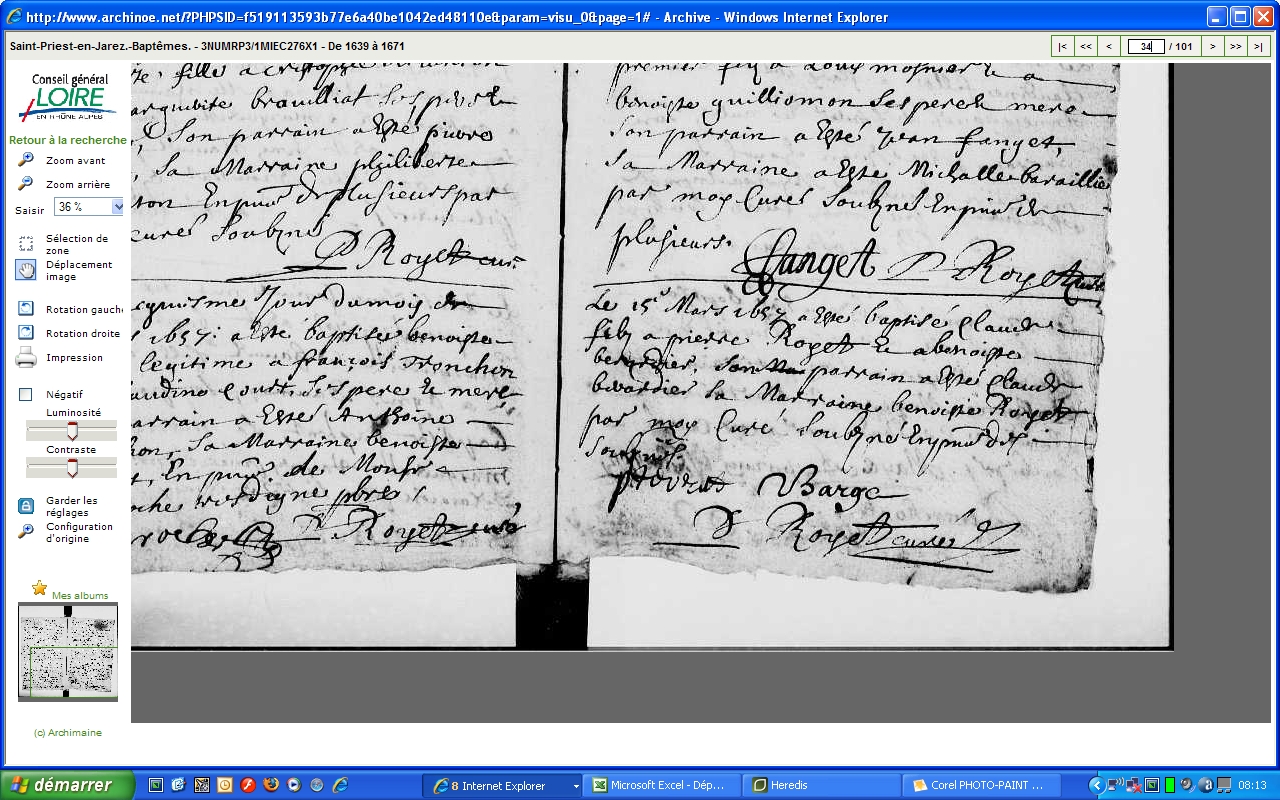 http://www.archinoe.net/?PHPSID=f519113593b77e6a40be1042ed48110e&param=visu_0&page=1# - Archive - Windows Internet Explorer
Saint-Priest-en-Jarez.-Baptêmes. - 3NUMRP3/1MIEC276X1 - De 1639 à 1671
|< << < 34 / 101 > >> >|
Conseil général
LOIRE
EN RHÔNE ALPES
Retour à la recherche
Zoom avant
Zoom arrière
Saisir 36 %
Sélection de
zone
Déplacement
image
Rotation gauche
Rotation droite
Impression
Négatif
Luminosité
Contraste
Garder les
réglages
Configuration
d'origine
Mes albums
(c) Archimaine
fille a
brouilliat ses pere
Son parrain a Esté pierre
sa Marraine philiberte
plusieurs par
curé Soubzné
D Royet curé
Jour du mois de
1657: a esté baptisé benoiste
legitime a françois Tronchon
court, ses pere et mere
parrain a Esté Anthoine
sa Marraine benoiste
En pnce de Monsr
D Royet curé
premier
benoiste guilliomon ses pere et mere
son parrain a Esté Jean fanget,
sa Marraine a Esté Michalle baraillie
par moy Curé Soubzné En pnce de
plusieurs.
fanget D Royet curé
Le 15e Mars 1657 a Esté baptisé Claude
filz a pierre Royet et a benoiste
berardier, son parrain a esté Claude
berardier sa Marraine benoiste Royet
par moy Curé Soubzné En pnce des
soubsnés
Barge
D Royet curé
démarrer
8 Internet Explorer
Microsoft Excel - Dép...
Heredis
Corel PHOTO-PAINT ...
08:13